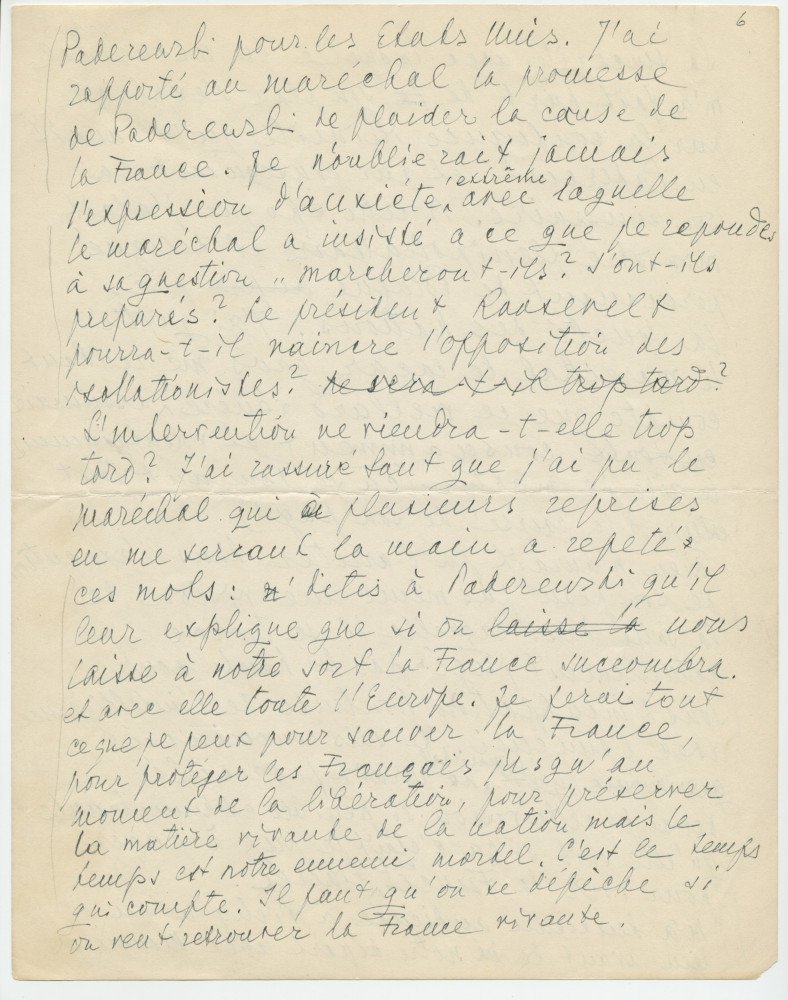 6
Paderewski pour les Etats Unis. J'ai
rapporté au maréchal la promesse
de Paderewski de plaider la cause de
la France. Je n'oublierait jamais
l'expression d'anxiété, extrême avec laquelle
le maréchal a insisté a ce que je repondes
à sa question „ marcheront-ils? S'ont-ils
preparés? Le président Roosevelt
pourra-t-il vaincre l'opposition des
isollationistes? ne sera-t-il trop tard?
L'intervention ne viendra-t-elle trop
tard? J'ai rassuré tant que j'ai pu le
maréchal qui à plusieurs reprises
en me serrant la main a repeté
ces mots: dites à Paderewski qu'il
leur explique que si on laisse la nous
laisse à notre sort la France succombra.
et avec elle toute l'Europe. Je ferai tout
ceque je peux pour sauver la France,
pour protéger les Français jusqu'au
moment de la libération, pour préserver
la matière vivante de la nation mais le
temps est notre ennemi mortel. C'est le temps
qui compte. Il faut qu'on se dépèche si
on veut retrouver la France vivante.